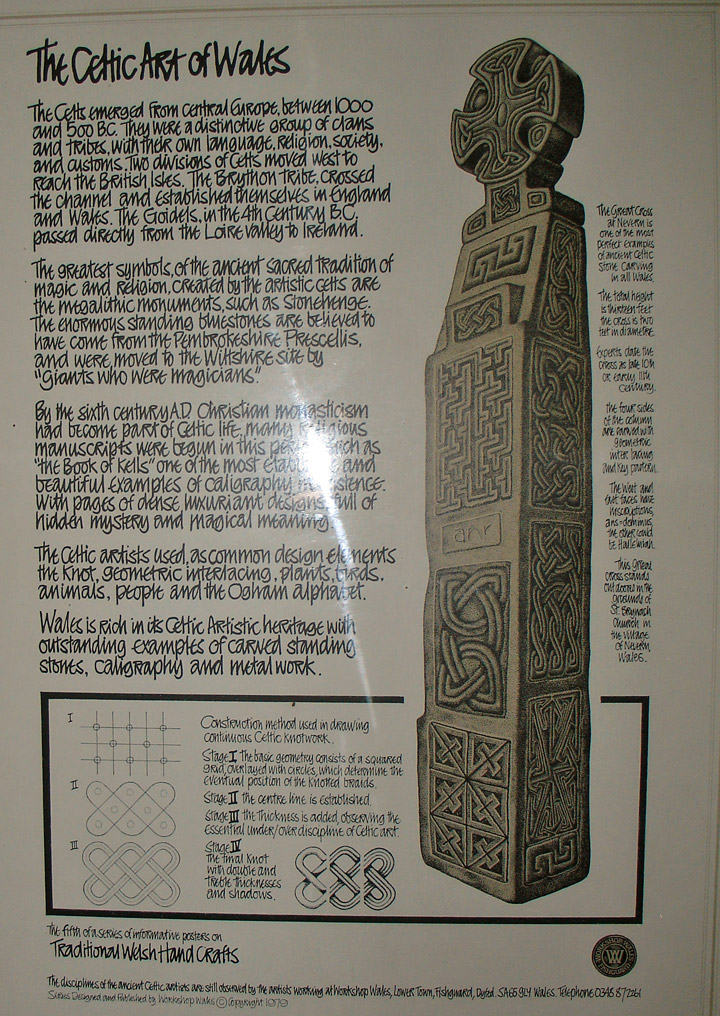 The Celtic Art of Wales
The Celts emerged from central Europe, between 1000
and 500 B.C. They were a distinctive group of clans
and tribes, with their own language, religion, society,
and customs. Two divisions of Celts moved west to
reach the British Isles. The Brython Tribe, crossed
the channel and established themselves in England
and Wales. The Goidels, in the 4th Century B.C.
passed directly from the Loire valley to Ireland.
The greatest symbols, of the ancient sacred tradition of
magic and religion, created by the artistic celts are
the megalithic monuments, such as Stonehenge.
The enormous standing bluestones are believed to
have come from the Pembrokeshire Prescellis,
and were moved to the Wiltshire site by
"Giants who were magicians".
By the sixth century A.D. Christian monasticism
had become part of Celtic life, many religious
manuscripts were begun in this such as
"the Book of Kells" one of the most and
beautiful examples of caligraphy existence.
With pages of dense, luxuriant designs, full of
hidden mystery and magical meaning.
The Celtic artists used, as common design elements
the Knot, geometric interlacing, plants, birds,
animals, people and the Ogham alphabet.
Wales is rich in its Celtic Artistic heritage with
outstanding examples of carved standing
stones, caligraphy and metalwork.
The Great Cross
at Nevern is
one of the most
perfect examples
of ancient Celtic
Stone Carving
in all Wales.
The total height
is thirteen feet
the cross is two
feet in diametre.
Experts date the
cross as late 10th
or early 11th
Century.
The four sides
of the column
are carved with
geometric
inter lacing
and key pattern.
The West and
East faces have
inscriptions,
the other could
be
This Great
Cross stands
out doors in the
grounds of
St. Brynach
Church in
the village
of Nevern,
Wales.
anr
I
II
III
Construction method used in drawing
continuous Celtic Knotwork.
Stage I The basic geometry consists of a squared
grid, overlayed with circles, which determine the
eventual position of the knotted braids.
Stage II the centre line is established.
Stage III the thickness is added, observing the
essential under/over discipline of Celtic art.
Stage IV
The final Knot
with double and
treble thicknesses
and shadows.
The fifth of a series of informative posters on
Traditional Welsh Hand Crafts
WORKSHOP WALES
FISHGUARD
W
The disciplines of the ancient Celtic artists are still observed by the artists working at Workshop Wales, Lower Town, Fishguard, Dyfed. SA65 9LY Wales. Telephone 0348 872261
Series Designed and Published by Workshop Wales © Copyright 1979